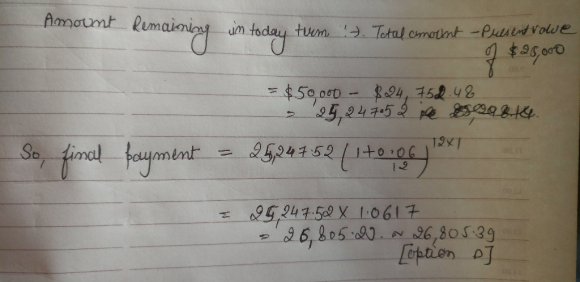 Amount Remaining in today turm :-> Total amount - Present value
of $25,000
= $50,000 - $24,752.48
= 25,247.52
So, final payment = 25,247.52 (1+0.06/12)^12×1
= 25,247.52 × 1.0617
= 26,805.23. ≈ 26,805.39
[option D]